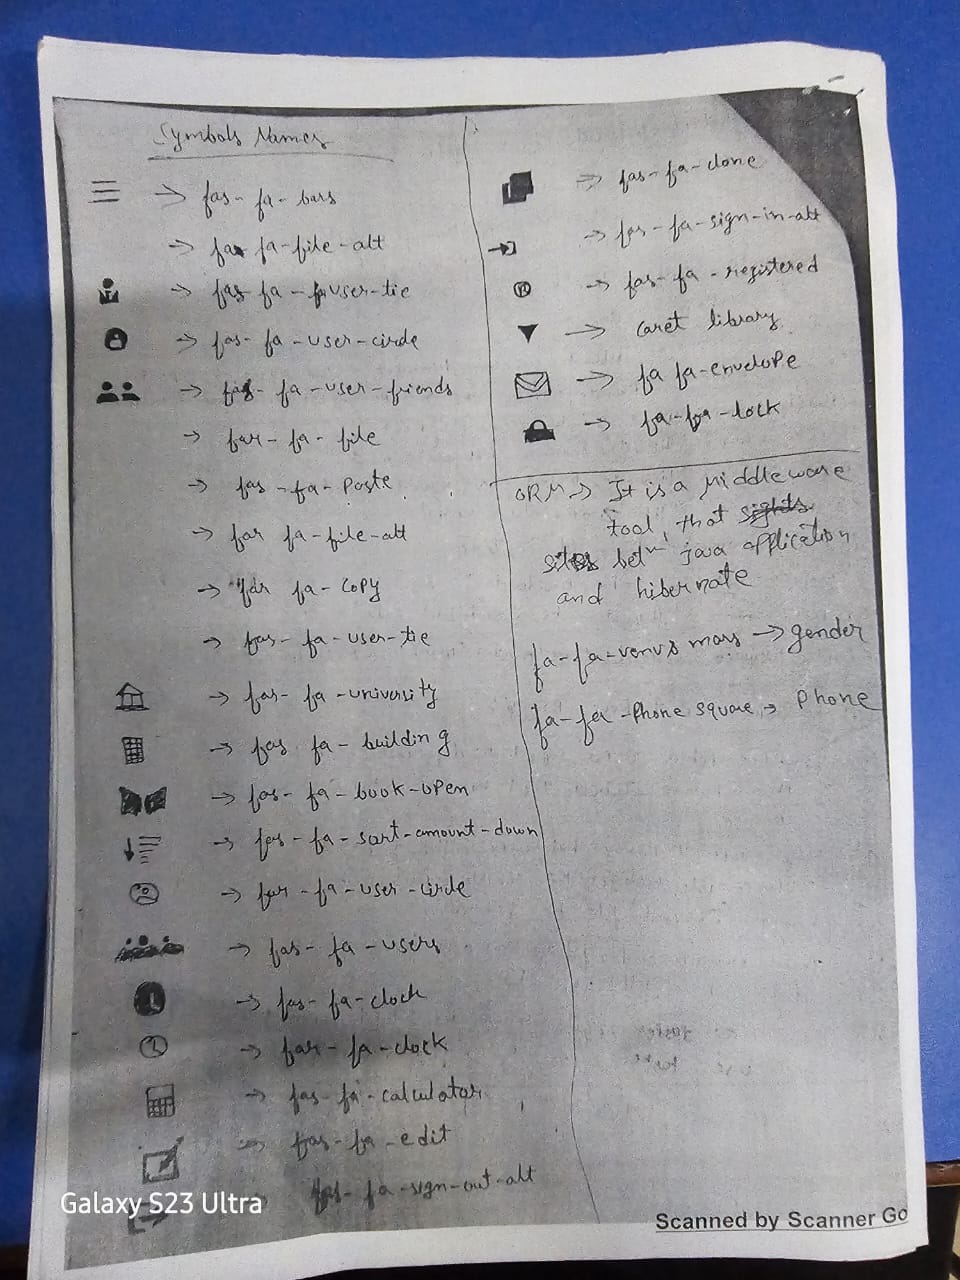 Symbols Names
→ fas-fa-bars
→ fa fa-file-alt
→ fas fa-user-tie
→ fas-fa-user-circle
→ fas-fa-user-friends
→ far-fa-file
→ fas-fa-Paste
→ far fa-file-alt
→ far fa-copy
→ fas-fa-user-tie
→ fas-fa-university
→ fas fa-building
→ fas-fa-book-open
→ fas-fa-sort-amount-down
→ far-fa-user-circle
→ fas-fa-users
→ fas-fa-clock
→ far-fa-clock
→ fas-fa-calculator
→ fas-fa-edit
fas-fa-sign-out-alt
→ fas-fa-clone
→ fas-fa-sign-in-alt
® → fas-fa-registered
→ caret library
→ fa fa-envelope
→ fa-fa-lock
ORM → It is a Middleware
tool, that
sites betn java application
and hibernate
fa-fa-venus mars → gender
fa-fa-Phone square → Phone
Galaxy S23 Ultra
Scanned by Scanner Go